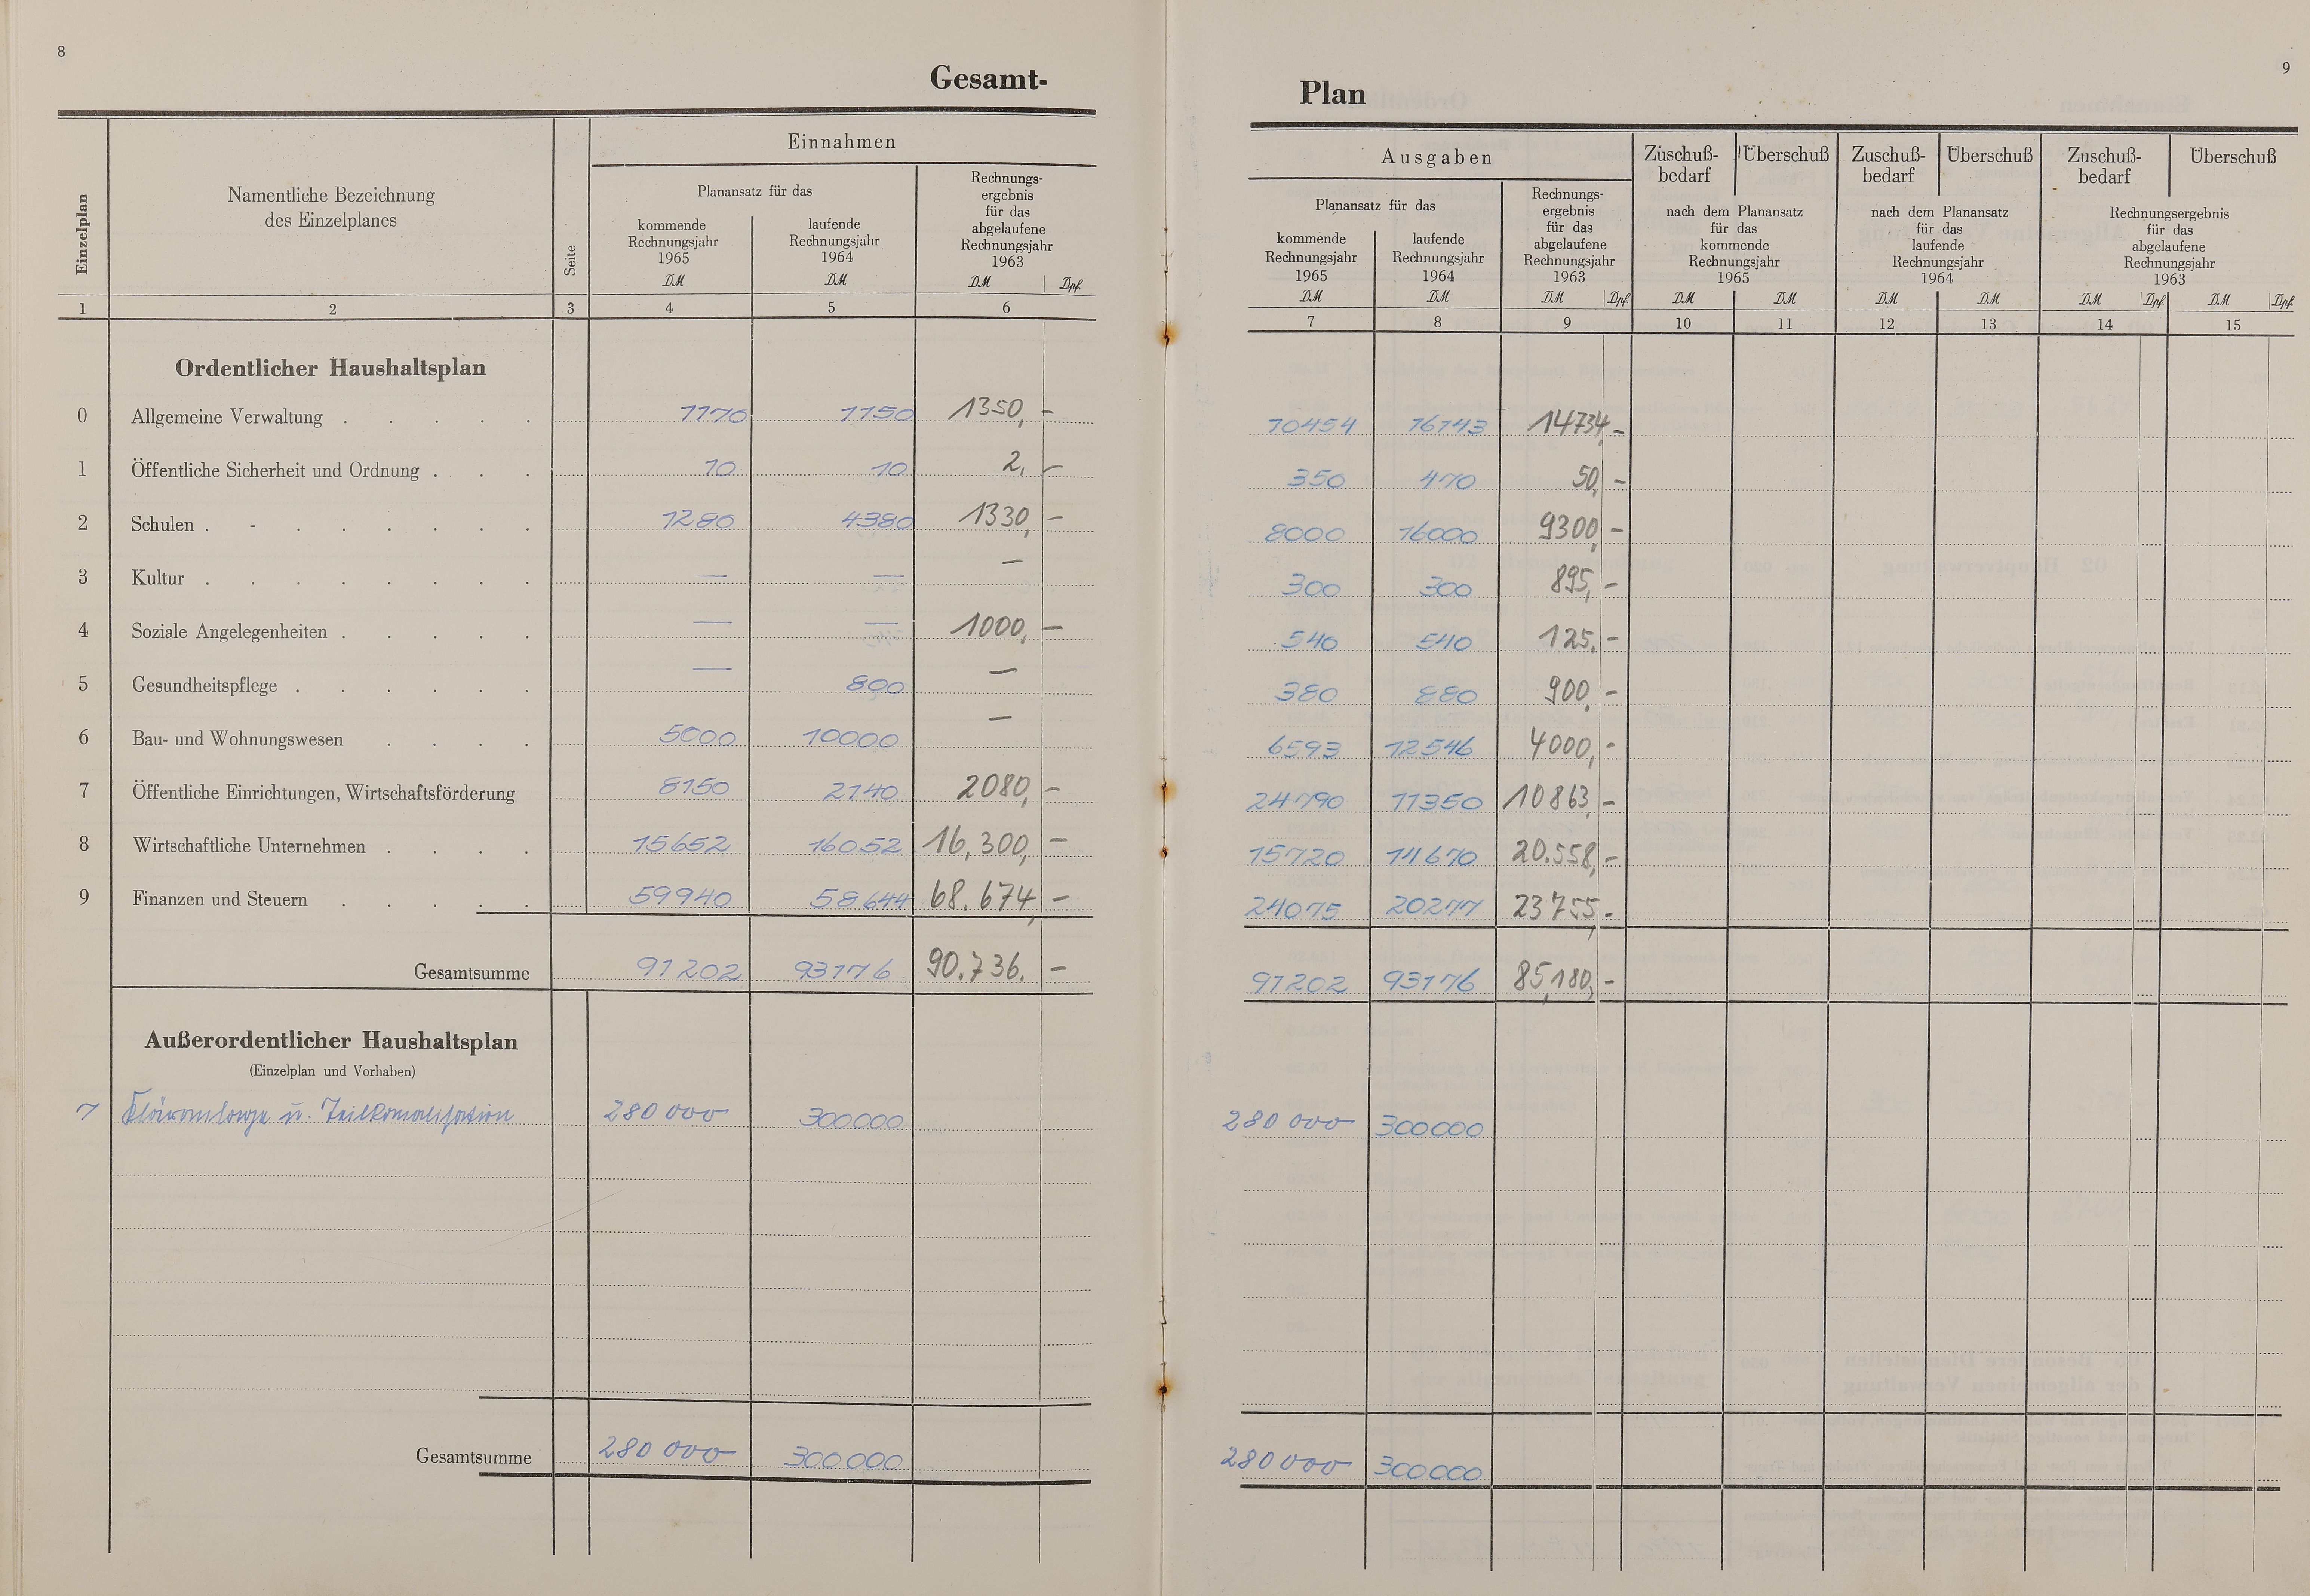 8
Gesamt-
Einzelplan
Namentliche Bezeichnung
des Einzelplanes
Seite
Einnahmen
Planansatz für das
kommende
Rechnungsjahr
1965
DM
laufende
Rechnungsjahr
1964
DM
Rechnungs-
ergebnis
für das
abgelaufene
Rechnungsjahr
1963
DM Dpf.
1 2 3 4 5 6
Ordentlicher Haushaltsplan
0 Allgemeine Verwaltung . . . . . 1170 1150 1350, -
1 Öffentliche Sicherheit und Ordnung . . . 10 10 2, -
2 Schulen . - . . . . . . 1280 4380 1330, -
3 Kultur . . . . . . . . — — —
4 Soziale Angelegenheiten . . . . . — — 1000, -
5 Gesundheitspflege . . . . . . — 800 —
6 Bau- und Wohnungswesen . . . . 5000 10000 —
7 Öffentliche Einrichtungen, Wirtschaftsförderung 8150 2140 2080, -
8 Wirtschaftliche Unternehmen . . . . 15652 16052 16,300, -
9 Finanzen und Steuern . . . . . 59940 58644 68.674, -
Gesamtsumme 91202 93176 90.736. -
Außerordentlicher Haushaltsplan
(Einzelplan und Vorhaben)
7 Kläranlage u. Teilkanalisation 280 000 300000
Gesamtsumme 280 000 300000
9
Plan
Ausgaben
Planansatz für das
kommende
Rechnungsjahr
1965
DM
laufende
Rechnungsjahr
1964
DM
Rechnungs-
ergebnis
für das
abgelaufene
Rechnungsjahr
1963
DM Dpf.
Zuschuß-
bedarf
Überschuß
nach dem Planansatz
für das
kommende
Rechnungsjahr
1965
DM DM
Zuschuß-
bedarf
Überschuß
nach dem Planansatz
für das
laufende
Rechnungsjahr
1964
DM DM
Zuschuß-
bedarf
Überschuß
Rechnungsergebnis
für das
abgelaufene
Rechnungsjahr
1963
DM Dpf. DM Dpf.
7 8 9 10 11 12 13 14 15
10454 16143 14734 -
350 470 50, -
8000 16000 9300, -
300 300 895, -
540 540 125, -
380 880 900, -
6593 12546 4000, -
24790 11350 10863, -
15720 14670 20.558, -
24075 20277 23755, -
91202 93176 85,180, -
280 000 300000
280 000 300000